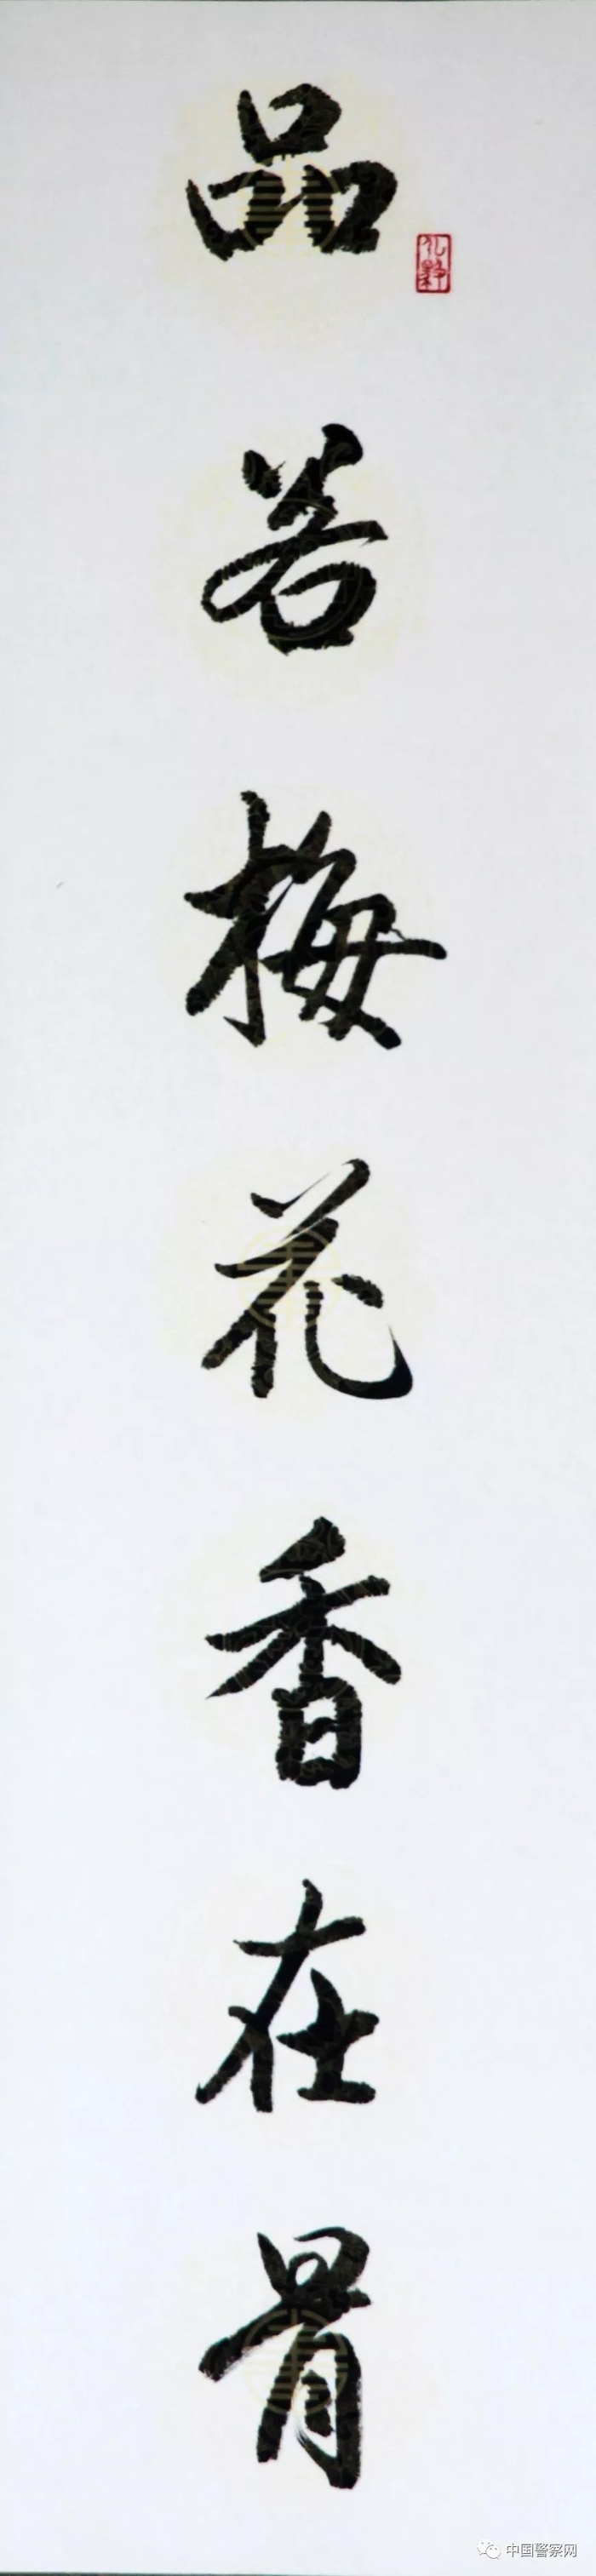 品若梅花香在骨
中国警察网